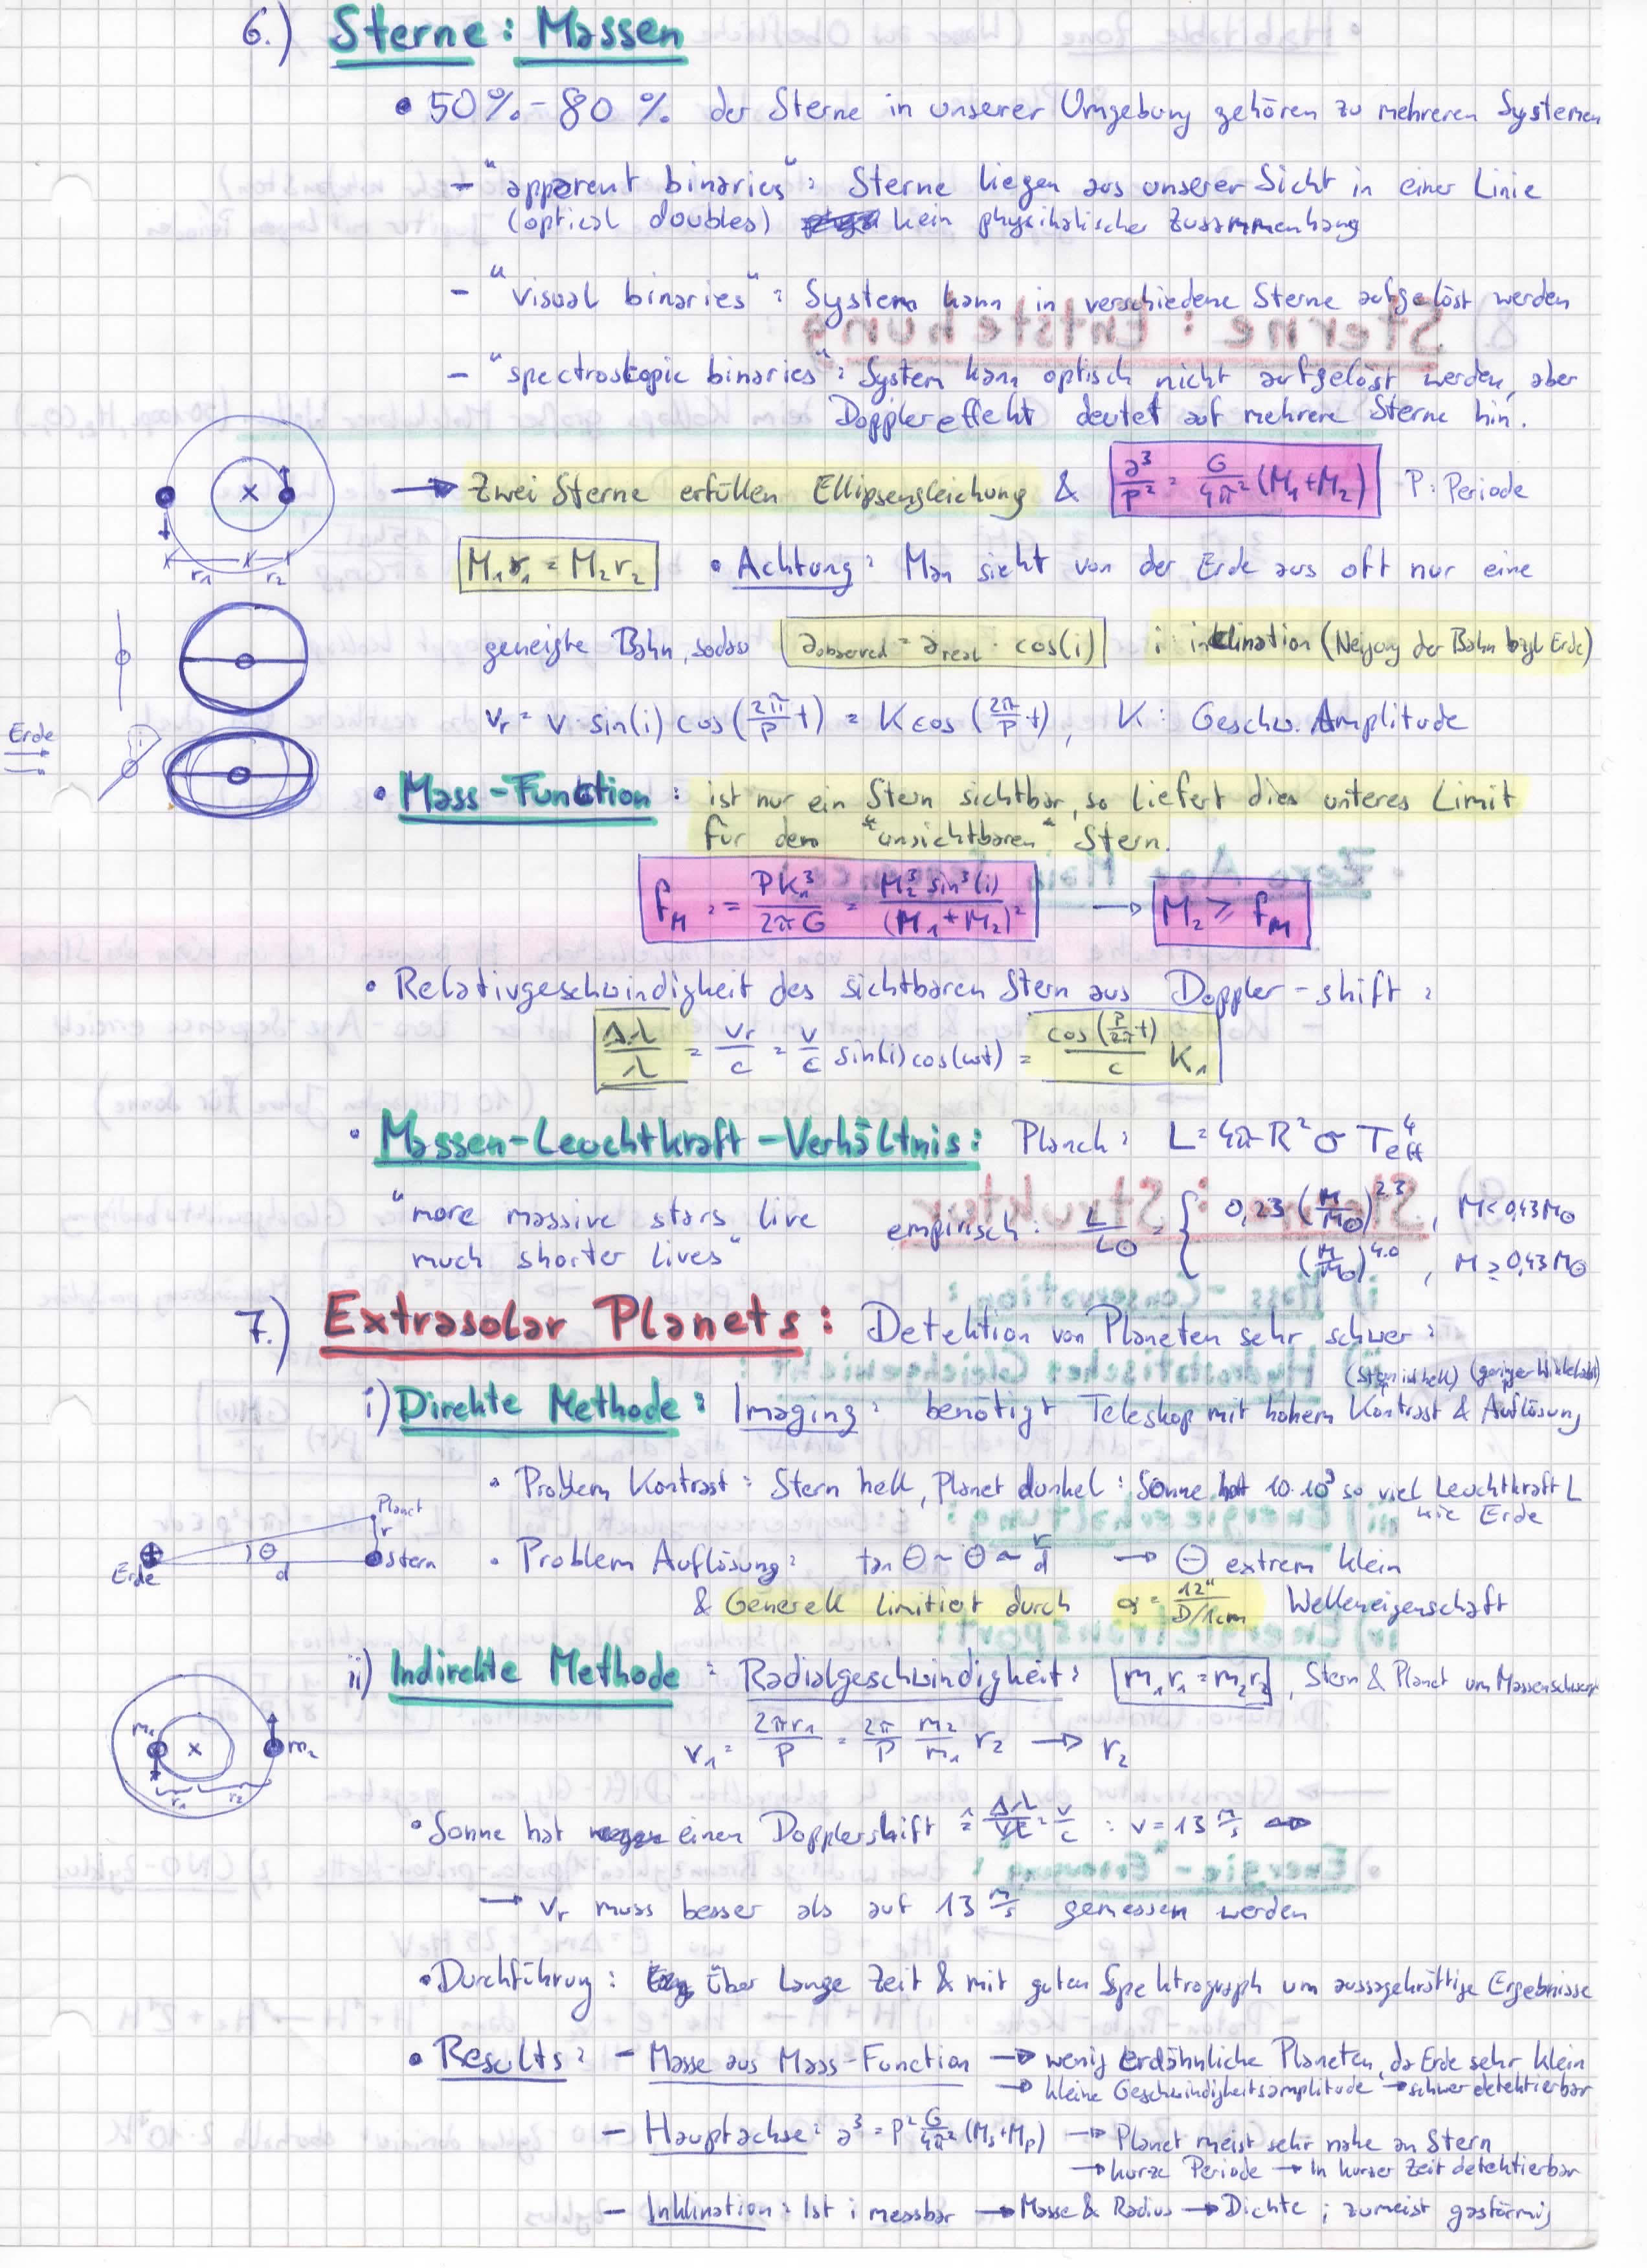 6.) Sterne: Massen
• 50% - 80 % der Sterne in unserer Umgebung gehören zu mehreren Systemen
- "apparent binaries": Sterne liegen aus unserer Sicht in einer Linie
(optical doubles) kein physikalischer Zusammenhang
- "visual binaries": System kann in verschiedene Sterne aufgelöst werden
- "spectroskopic binaries": System kann optisch nicht aufgelöst werden, aber
Dopplereffekt deutet auf mehrere Sterne hin.
→ Zwei Sterne erfüllen Ellipsengleichung & a³/P² = G/4π² (M₁+M₂) P: Periode
r₁ r₂
M₁r₁ = M₂r₂ • Achtung: Man sieht von der Erde aus oft nur eine
geneigte Bahn, sodass a_observed = a_real · cos(i) i inklination (Neigung der Bahn bzgl Erde)
Erde
v_r = v · sin(i) cos(2π/P t) = K cos(2π/P t), K: Geschw. Amplitude
• Mass-Function: ist nur ein Stern sichtbar, so liefert dies unteres Limit
für den "unsichtbaren" Stern.
f_M := PK₁³/2πG = M₂³ sin³(i)/(M₁+M₂)² → M₂ ≥ f_M
• Relativgeschwindigkeit des sichtbaren Stern aus Doppler-shift:
Δλ/λ = v_r/c = v/c sin(i) cos(ωt) = cos(P/2π t)/c K₁
• Massen-Leuchtkraft-Verhältnis: Planck: L = 4πR²σ T_eff⁴
"more massive stars live
much shorter lives"
empirisch: L/L⊙ = { 0,23 (M/M⊙)^2.3 , M < 0,43M⊙
(M/M⊙)^4.0 , M ≥ 0,43M⊙
7.) Extrasolar Planets: Detektion von Planeten sehr schwer:
(Stern ist hell) (geringer Winkelabst)
i) Direkte Methode: Imaging: benötigt Teleskop mit hohem Kontrast & Auflösung
• Problem Kontrast: Stern hell, Planet dunkel: Sonne hat 10·10³ so viel Leuchtkraft L
wie Erde
Planet
r
Erde θ d Stern
• Problem Auflösung: tan θ ~ θ ~ r/d → θ extrem klein
& Generell limitiert durch α = 12"/D/1cm Welleneigenschaft
ii) Indirekte Methode: Radialgeschwindigkeit: m₁r₁ = m₂r₂, Stern & Planet um Massenschwerp
m₁ m₂ r₁ r₂
v₁ = 2πr₁/P = 2π/P m₂/m₁ r₂ → r₂
• Sonne hat einen Dopplershift ≙ Δλ/λ = v/c : v = 13 m/s
→ v_r muss besser als auf 13 m/s gemessen werden
• Durchführung: über lange Zeit & mit guten Spektrograph um aussagekräftige Ergebnisse
• Results: - Masse aus Mass-Function → wenig erdähnliche Planeten, da Erde sehr klein
→ kleine Geschwindigkeitsamplitude → schwer detektierbar
- Hauptachse: a³ = P² G/4π² (M_s+M_p) → Planet meist sehr nahe an Stern
→ kurze Periode → In kurzer Zeit detektierbar
- Inklination: Ist i messbar → Masse & Radius → Dichte ; zumeist gasförmig